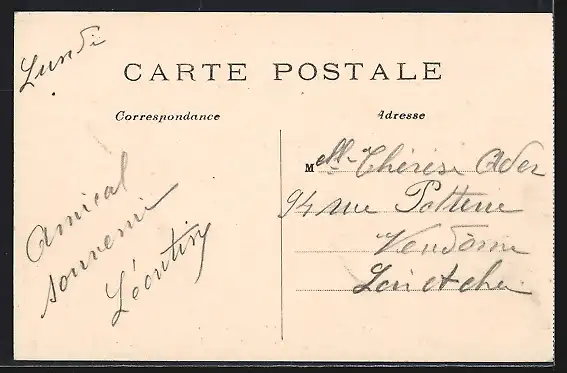 Lundi
CARTE POSTALE
Correspondance
Adresse
Amical
souvenir
Léontine
Melle Thérèse Ader
94 rue Potterie
Vendôme
Loir et cher